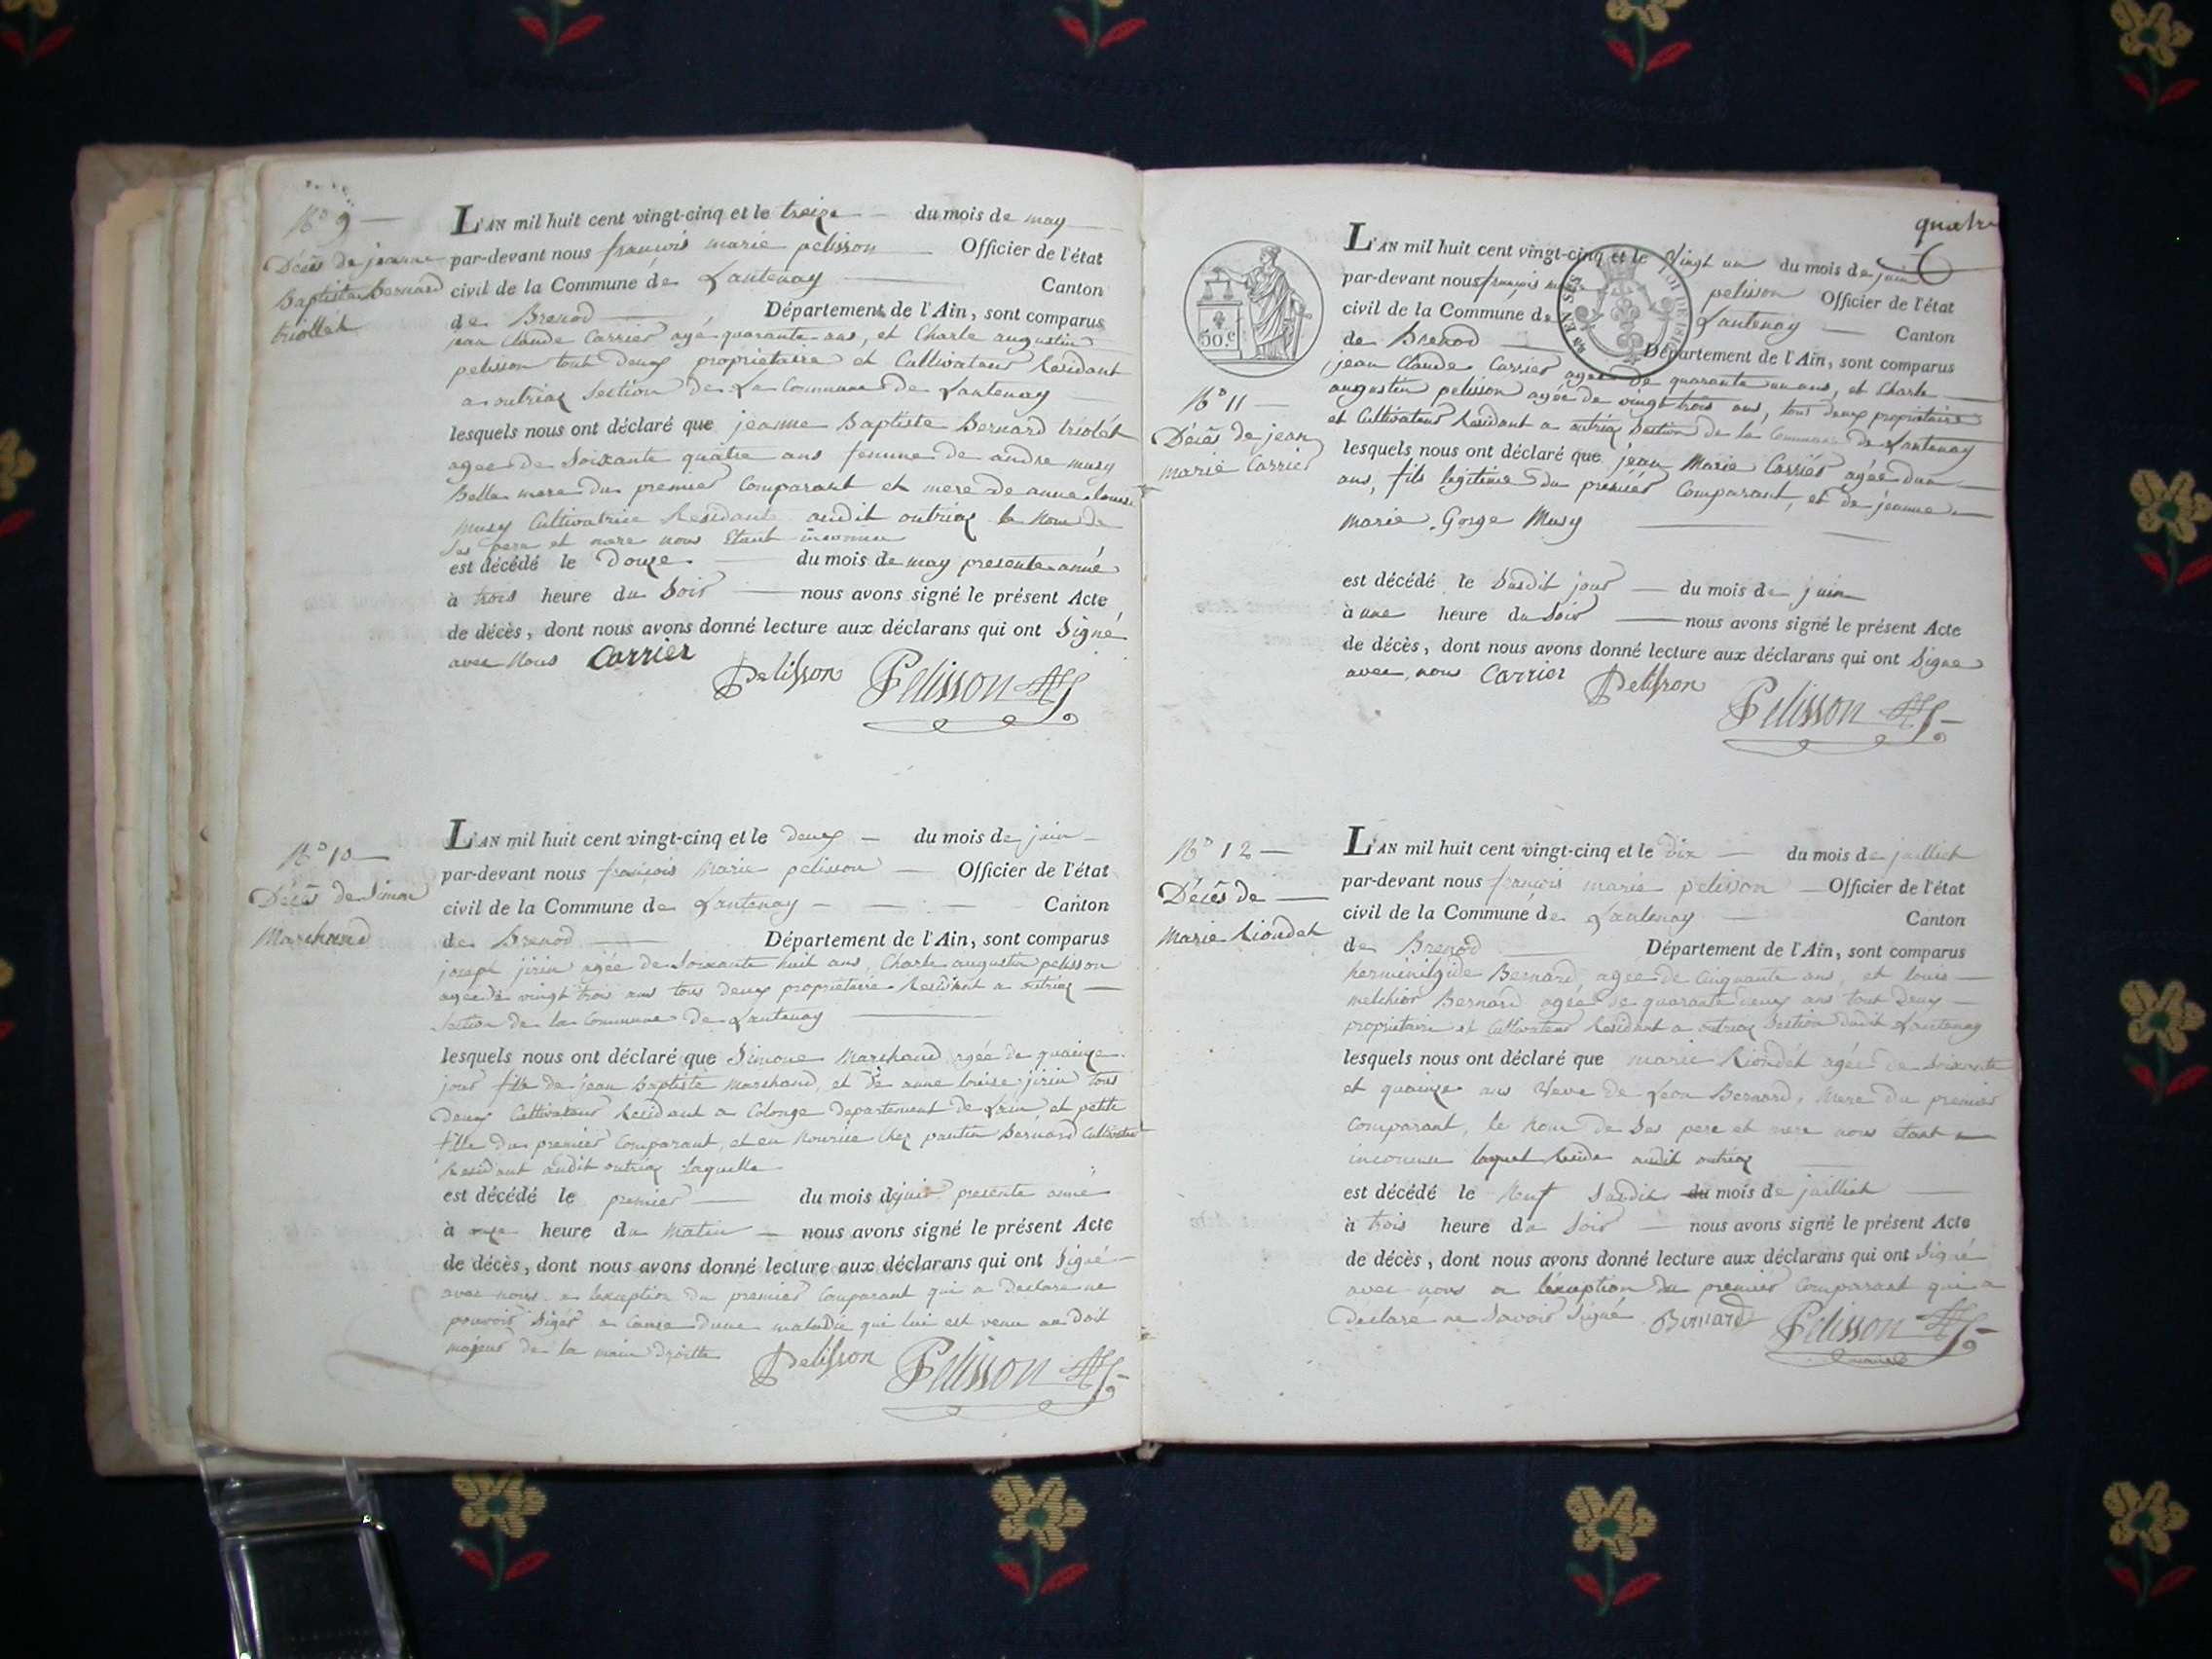 N° 9 —
Décès de jeanne
Baptiste Bernard
triollét
L'AN mil huit cent vingt-cinq et le treize — du mois de may
par-devant nous françois marie pelisson — Officier de l'état
civil de la Commune de Lantenay — Canton
de Brenod — Département de l'Ain, sont comparus
jean Claude Carrier agé quarante ans, et Charle augustin
pelisson tout deux proprietaire et Cultivateur Residant
a outriaz Section de La Commune de Lantenay
lesquels nous ont déclaré que jeanne Baptiste Bernard triolét
agee de Soixante quatre ans femme de andre musy
Belle mere du premier Comparant et mere de anne Louise
musy Cultivatrice Residant audit outriaz le Nom de
Ses pere et mere nous Etant inconnu
est décédé le Douze — du mois de may presente anné
à trois heure du Soir — nous avons signé le présent Acte
de décès, dont nous avons donné lecture aux déclarans qui ont Signé
avec Nous Carrier
Pelisson Pelisson
N° 10 —
Décès de Simone
Marchand
L'AN mil huit cent vingt-cinq et le deux — du mois de juin —
par-devant nous françois Marie pelisson — Officier de l'état
civil de la Commune de Lantenay — Canton
de Brenod — Département de l'Ain, sont comparus
joseph jirin agée de Soixante huit ans, Charle augustin pelisson
agee de vingt trois ans tous deux proprietaire Residant a outriaz —
Section de la Commune de Lantenay
lesquels nous ont déclaré que Simone Marchand agée de quainze
jour fille de jean Baptiste Marchand, et de anne louise jirin tous
Deux Cultivateur Residant a Colonge departement de Lain, et petite
fille du premier Comparant, et en Nourice Chez Bernard Cultivateur
Residant audit outriaz laquelle
est décédé le premier — du mois de juin presente anné
à heure du Matin — nous avons signé le présent Acte
de décès, dont nous avons donné lecture aux déclarans qui ont Signé —
avec nous a lexception du premier Comparant qui a Declare ne
pouvoir Signer a Cause dune maladie qui lui est venu au doit
majeur de la main droitte Pelisson Pelisson
quatre
50.c
EN SUS
LOI DE 1816
N° 11 —
Décès de jean
marie Carrier
L'AN mil huit cent vingt-cinq et le Vingt un du mois de juin
par-devant nous françois pelisson Officier de l'état
civil de la Commune de Lantenay — Canton
de Brenod — Département de l'Ain, sont comparus
jean Claude Carrier agee de quarante un ans, et Charle
augustin pelisson agée de vingt trois ans, tous deux proprietaire
et Cultivateur Residant a outriaz Section de la Commune de Lantenay
lesquels nous ont déclaré que jean Marie Carrier agée dun
ans, fils légitime du prémier Comparant, et de jeanne
Marie Gorge Musy
est décédé le Susdit jour — du mois de juin
à une heure du Soir — nous avons signé le présent Acte
de décès, dont nous avons donné lecture aux déclarans qui ont Signe
avec nous Carrier Pelisson
Pelisson
N° 12 —
Décès de —
Marie Riondet
L'AN mil huit cent vingt-cinq et le dix — du mois de juilliet
par-devant nous françois marie pelisson — Officier de l'état
civil de la Commune de Lantenay — Canton
de Brenod — Département de l'Ain, sont comparus
herminihgide Bernard, agee de Cinquante ans, et louis —
melchior Bernard agée de quarante deux ans tout Deux —
proprietaire et Cultivateur Residant a outriaz Section dudit Lantenay
lesquels nous ont déclaré que marie Riondét agée de Soixante
et quainze ans Veve de Leon Bernard, Mere du premier
Comparant, le Nom de Ses pere et mere nous étant
inconnu laquel Reside audit outriaz
est décédé le Neuf Susdit du mois de juilliet
à trois heure du Soir — nous avons signé le présent Acte
de décès, dont nous avons donné lecture aux déclarans qui ont Signé
avec nous a lexeption du premier Comparant qui a
déclaré ne Savoir Signé Bernard Pelisson
maire